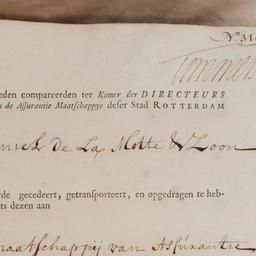 N° 310
eden compareerden ter Kamer der DIRECTEURS
n de Assurantie Maatschappye deser Stad ROTTERDAM
de La Motte & Zoon
rde gecedeert, getransporteert, en opgedragen te heb-
ts dezen aan
aatschappij van Assurantie